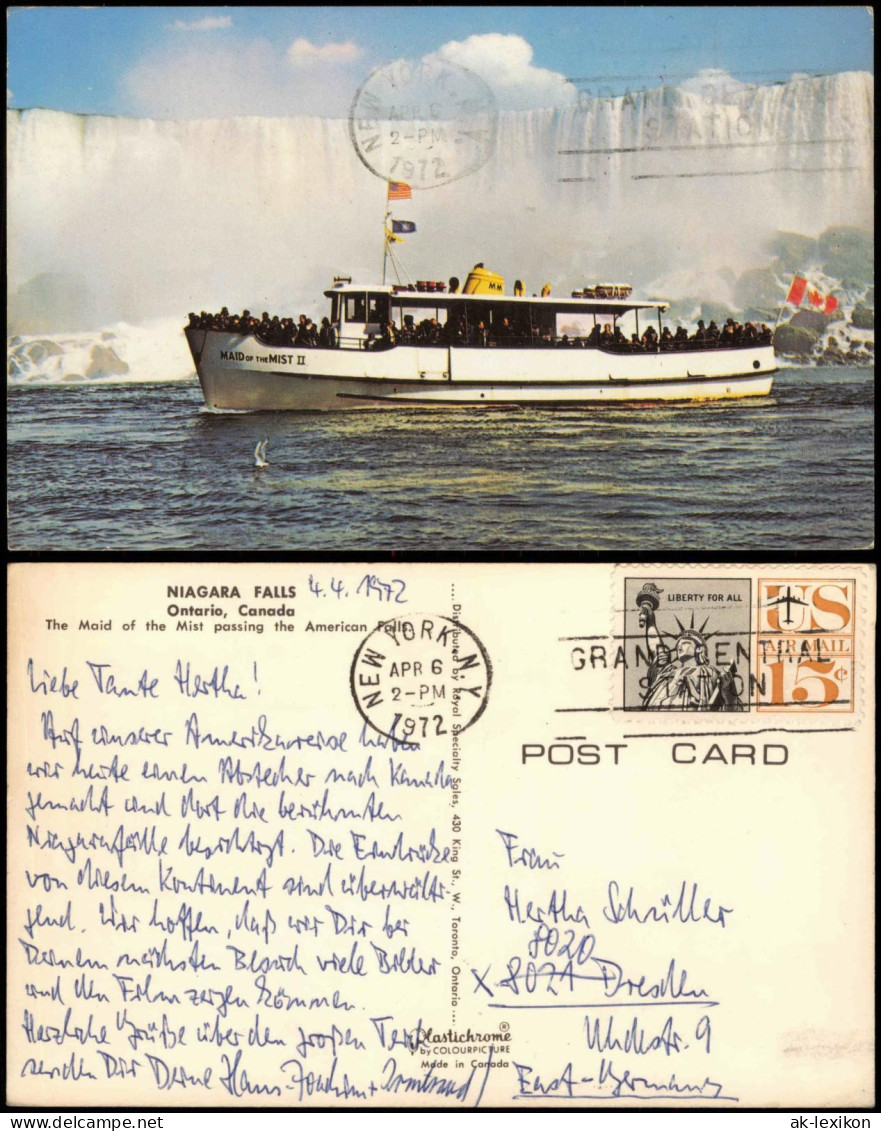 NEW YORK, N.Y.
APR 6
2-PM
1972
GRAND CENTRAL
STATION
MM
MAID OF THE MIST II
NIAGARA FALLS
Ontario, Canada
The Maid of the Mist passing the American Falls
4.4.1972
Liebe Tante Hertha!
Auf unserer Amerikareise haben
wir heute einen Abstecher nach Kanada
gemacht und dort die berühmten
Niagarafälle besichtigt. Die Eindrücke
von diesem Kontinent sind überwälti-
gend. Wir hoffen, daß wir Dir bei
Deinem nächsten Besuch viele Bilder
und den Film zeigen können.
Herzliche Grüße über den großen Teich
senden Dir Deine Hans-Joachim + Irmtraud
Distributed by Royal Specialty Sales, 430 King St., W., Toronto, Ontario
Plastichrome®
by COLOURPICTURE
Made in Canada
NEW YORK, N.Y.
APR 6
2-PM
1972
GRAND CENTRAL
STATION
LIBERTY FOR ALL
US
AIR MAIL
15¢
POST CARD
Frau
Hertha Schüller
8020
x 8021 Dresden
Uhdestr. 9
East-Germany
ak-lexikon